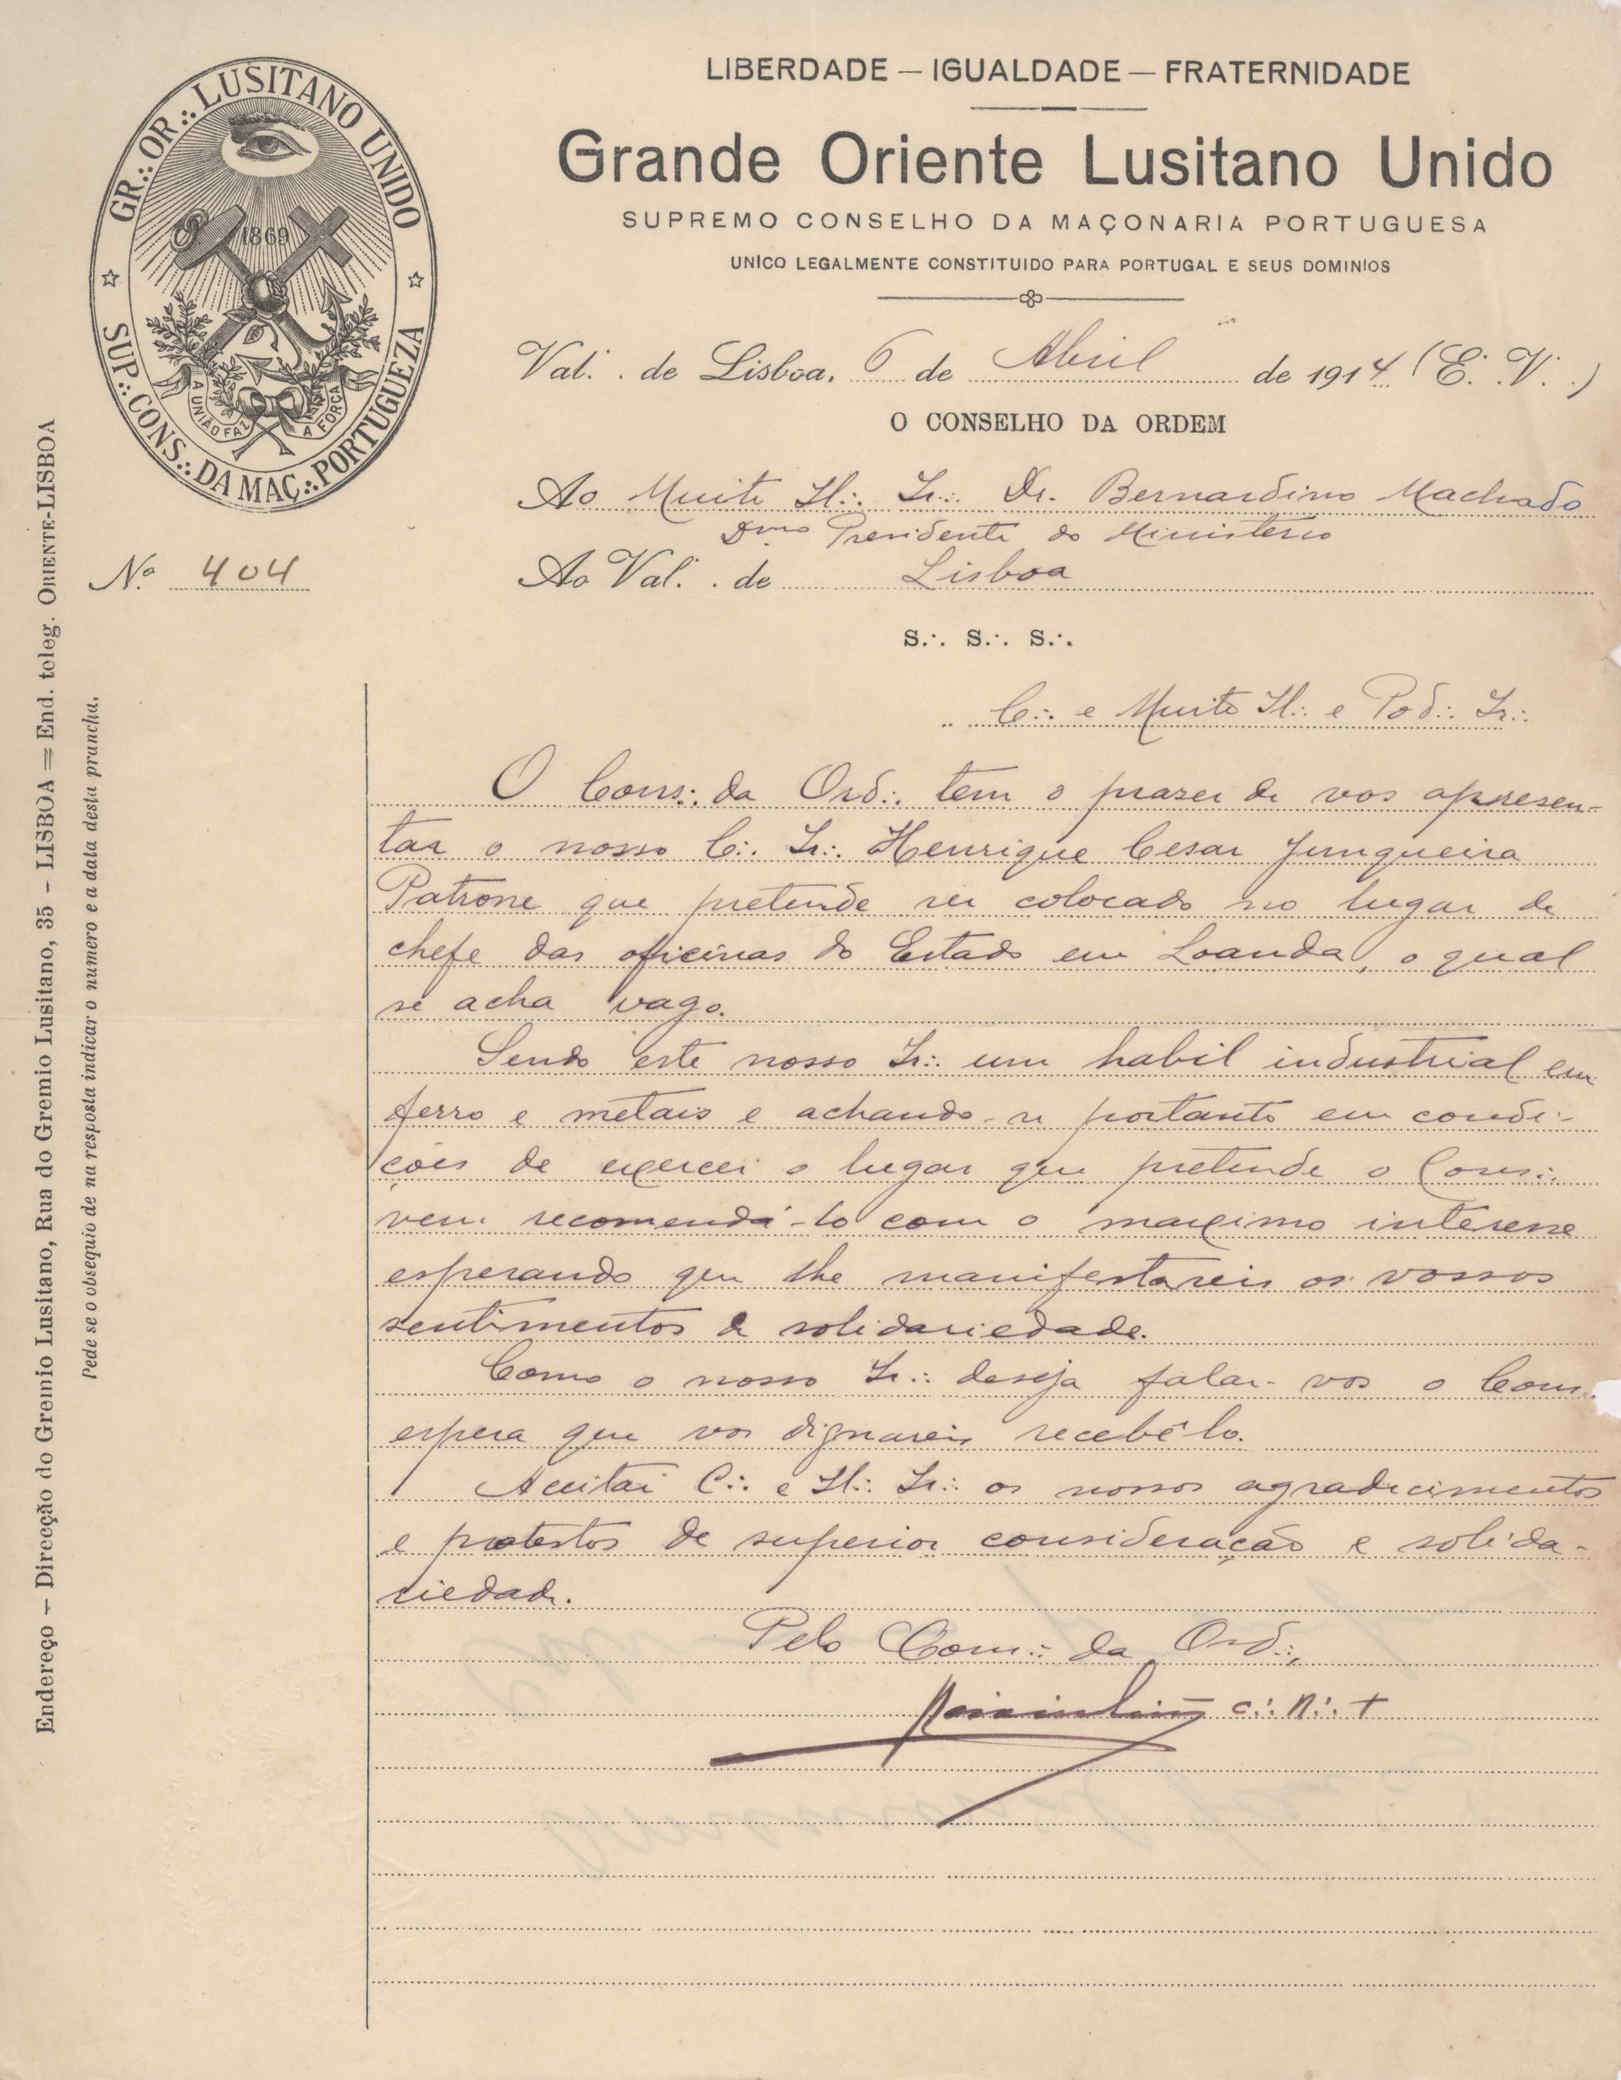 LIBERDADE — IGUALDADE — FRATERNIDADE
Grande Oriente Lusitano Unido
SUPREMO CONSELHO DA MAÇONARIA PORTUGUESA
UNICO LEGALMENTE CONSTITUIDO PARA PORTUGAL E SEUS DOMINIOS
GR.∴ OR.∴ LUSITANO UNIDO
1869
A UNIÃO FAZ A FORÇA
SUP.∴ CONS.∴ DA MAÇ.∴ PORTUGUEZA
Val∴ de Lisboa, 6 de Abril de 1914 (E∴ V∴)
O CONSELHO DA ORDEM
Ao Muito Il∴ Ir∴ Dr. Bernardino Machado
Dmo Presidente do Ministerio
Nº 404
Ao Val∴ de Lisboa
S∴ S∴ S∴
C∴ e Muito Il∴ e Pod∴ Ir∴
O Cons∴ da Ord∴ tem o prazer de vos apresen-
tar o nosso C∴ Ir∴ Henrique Cesar Junqueira
Patrone que pretende ser colocado no lugar de
chefe das oficinas do Estado em Loanda, o qual
se acha vago.
Sendo este nosso Ir∴ um habil industrial em
ferro e metais e achando-se portanto em condi-
ções de exercer o lugar que pretende o Cons∴
vem recomendá-lo com o maximo interesse
esperando que lhe manifestareis os vossos
sentimentos de solidariedade.
Como o nosso Ir∴ deseja falar-vos o Cons∴
espera que vos dignareis recebê-lo.
Aceitai C∴ e Il∴ Ir∴ os nossos agradecimentos
e protestos de superior consideração e solida-
riedade.
Pelo Cons∴ da Ord∴,
C∴ R∴ +
Endereço — Direcção do Gremio Lusitano, Rua do Gremio Lusitano, 35 - LISBOA = End. teleg. ORIENTE-LISBOA
Pede se o obsequio de na resposta indicar o numero e a data desta prancha.